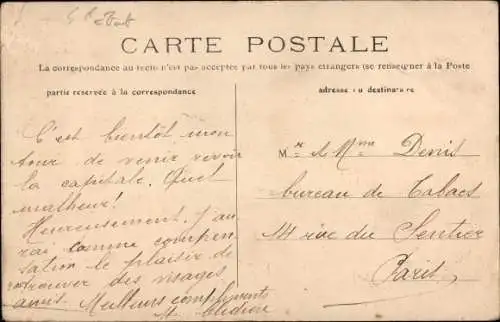 CARTE POSTALE
La correspondance au recto n'est pas acceptée par tous les pays étrangers (se renseigner à la Poste
partie réservée à la correspondance
adresse du destinataire
C'est bientôt mon
tour de venir revoir
la capitale. Quel
malheur!
Heureusement j'au
rai comme compen
sation le plaisir de
retrouver des visages
amis. Meilleurs compliments
Mr et Mme Denis
bureau de Tabacs
14 rue du Sentier
Paris